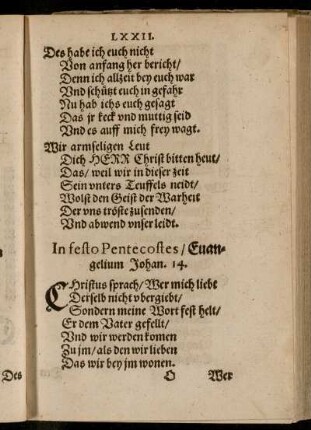 LXXII.
Des habe ich euch nicht
Von anfang her bericht/
Denn ich allzeit bey euch war
Vnd schützt euch in gefahr
Nu hab ichs euch gesagt
Das jr keck vnd muttig seid
Vnd es auff mich frey wagt.
Wir armseligen Leut
Dich HERR Christ bitten heut/
Das/ weil wir in dieser zeit
Sein vnters Teuffels neidt/
Wolst den Geist der Warheit
Der vns tröste zusenden/
Vnd abwend vnser leidt.
In festo Pentecostes/ Euan-
gelium Johan. 14.
CHristus sprach/ Wer mich liebt
Derselb nicht vbergiebt/
Sondern meine Wort fest helt/
Er dem Vater gefellt/
Vnd wir werden komen
Zu jm/ als den wir lieben
Das wir bey jm wonen.
Des
O Wer